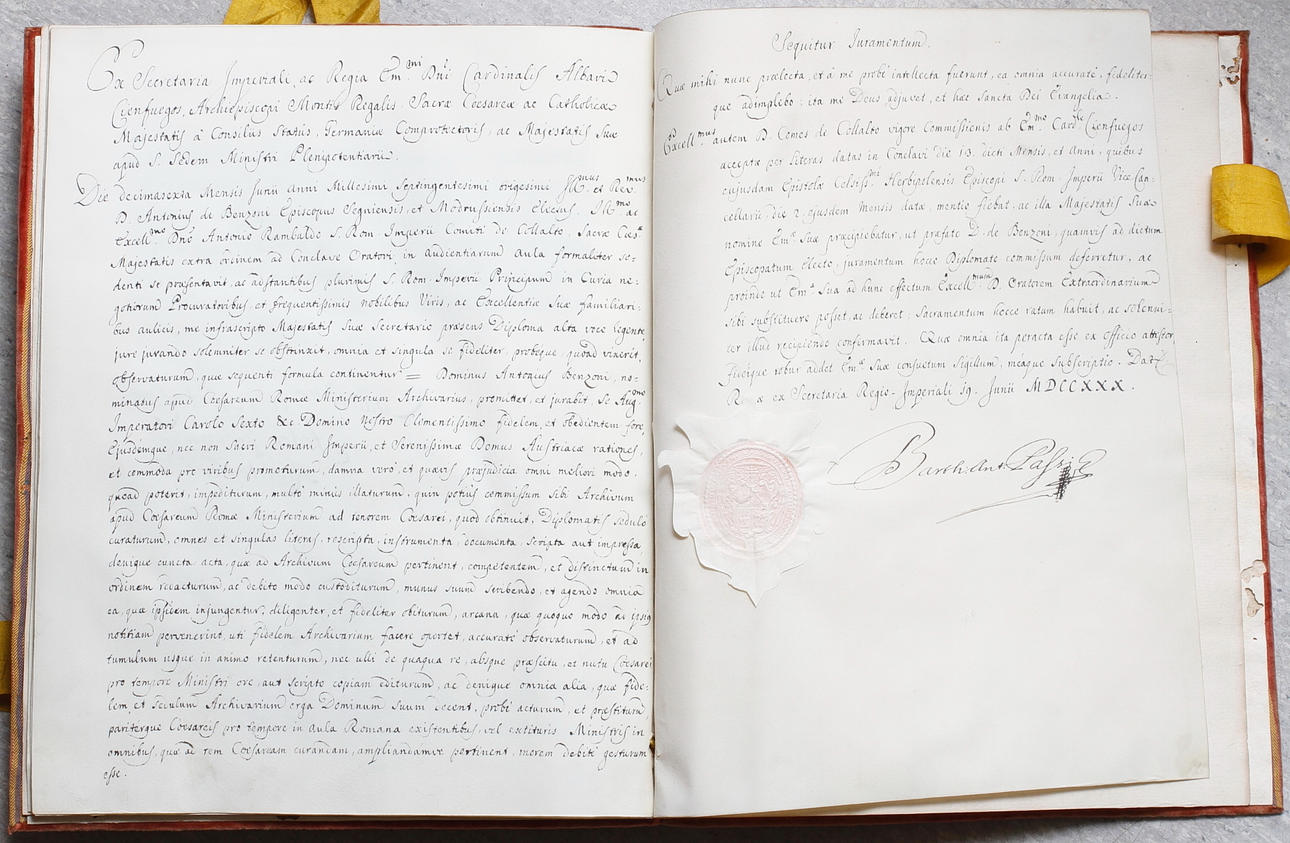 Ex Secretaria Imperiali, ac Regia Em.mi Dni Cardinalis Alvari
Cienfuegos, Archiepiscopi Montis Regalis, Sacræ Cæsareæ ac Catholicæ
Majestatis à Consiliis Status, Germaniæ Comprotectoris, ac Majestatis Suæ
apud S. Sedem Ministri Plenipotentiarii.
Die decimasexta Mensis Junii Anni Millesimi Septingentesimi trigesimi Ill.mus et Rev.mus
D. Antonius de Benzoni Episcopus Segniensis, et Modrussiensis Electus, Ill.mo ac
Excell.mo Dno Antonio Rambaldo S. Rom. Imperii Comiti de Collalto, Sacræ Cæs.æ
Majestatis extra ordinem ad Conclave Oratori, in audientiarum Aula formaliter se-
denti se præsentavit, ac adstantibus plurimis S. Rom. Imperii Principum in Curia ne-
gotiorum Procuratoribus, et frequentissimis nobilibus Viris, ac Excellentiæ Suæ familiari-
bus aulicis, me infrascripto Majestatis Suæ Secretario præsens Diploma alta voce legente,
jure jurando solemniter se obstrinxit, omnia et singula se fideliter, probeque, quoad vixerit,
observaturum, quæ sequenti formula continentur = Dominus Antonius Benzoni, no-
minatus apud Cæsareum Romæ Ministerium Archivarius, promittet, et jurabit, se Aug.mo
Imperatori Carolo Sexto &c Domino Nostro Clementissimo fidelem, et obedientem fore,
Ejusdemque, nec non Sacri Romani Imperii, et Serenissimæ Domus Austriacæ rationes,
et commoda pro viribus promoturum, damna verò, et quævis præjudicia omni meliori modo,
quoad poterit, impediturum, multò minùs illaturum, quin potiùs commissum sibi Archivum
apud Cæsareum Romæ Ministerium ad tenorem Cæsarei, quod obtinuit, Diplomatis sedulò
curaturum, omnes et singulas literas, rescripta, instrumenta, documenta, scripta aut impressa
denique cuncta acta, quæ ad Archivum Cæsareum pertinent, competentem, et distinctum in
ordinem redacturum, ac debito modo custoditurum, munus suum scribendo, et agendo omnia
ea, quæ ipsidem injungentur, diligenter, et fideliter obiturum, arcana, quæ quoquo modo in ipsius
notitiam pervenerint, uti fidelem Archivarium facere oportet, accuratè observaturum, et ad
tumulum usque in animo retenturum, nec ulli de quaqua re, absque præscitu, et nutu Cæsarei
pro tempore Ministri ore, aut scripto copiam editurum, ac denique omnia alia, quæ fide-
lem, et sedulum Archivarium erga Dominum suum decent, probè acturum, et præstiturum,
pariterque Cæsareis pro tempore in Aula Romana existentibus, vel extituris Ministris in
omnibus, quæ ad rem Cæsaream curandam, ampliandamve pertinent, morem debitè gesturum
esse.
Sequitur Juramentum.
Quæ mihi nunc prælecta, et à me probè intellecta fuerunt, ea omnia accuratè, fideliter-
que adimplebo: ita me Deus adjuvet, et hæc Sancta Dei Evangelia.
Excell.mus autem D. Comes de Collalto vigore Commissionis ab Em.mo Card.le Cienfuegos
acceptæ per Literas datas in Conclavi die 13. dicti Mensis, et Anni, quibus
cujusdam Epistolæ Celsiss.mi Herbipolensis Episcopi S. Rom. Imperii Vice Can-
cellarii, die 2. ejusdem mensis datæ, mentio fiebat, ac illa Majestatis Suæ
nomine Em.æ Suæ præcipiebatur, ut præfato D. de Benzoni, quamvis ad dictum
Episcopatum Electo, juramentum hocce Diplomate commissum deferretur, ac
proinde ut Em.a Sua ad hunc effectum Excell.mum D. Oratorem Extraordinarium
sibi substituere posset, ac deberet, Sacramentum hocce ratum habuit, ac solemni-
ter illud recipiendo confirmavit. Quæ omnia ita peracta esse ex officio attestor
fideique robur addet Em.æ Suæ consuetum Sigillum, meaque Subscriptio. Dat.
Romæ ex Secretaria Regio-Imperiali 19. Junii MDCCXXX.
Barth. Ant.